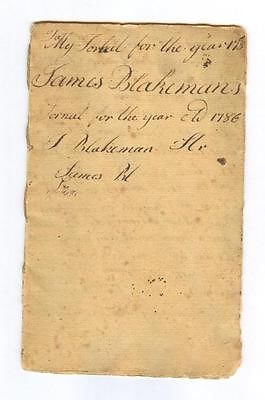 My Jornal for the year 178
James Blakemans
Jornal for the year AD 1786
J Blakeman
James Bl